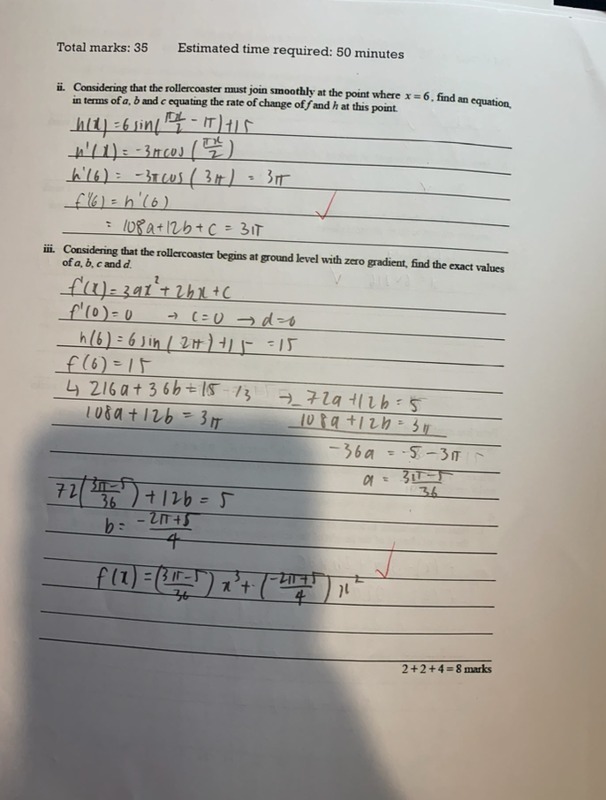 Total marks: 35 Estimated time required: 50 minutes
ii. Considering that the rollercoaster must join smoothly at the point where x = 6, find an equation,
in terms of a, b and c equating the rate of change of f and h at this point.
h(x) = 6 sin(πx/2 - π) + 15
h'(x) = -3π cos (πx/2)
h'(6) = -3π cos (3π) = 3π
f'(6) = h'(6)
= 108a + 12b + c = 3π
iii. Considering that the rollercoaster begins at ground level with zero gradient, find the exact values
of a, b, c and d.
f'(x) = 3ax² + 2bx + c
f'(0) = 0 → c = 0 → d = 0
h(6) = 6 sin(2π) + 15 = 15
f(6) = 15
↳ 216a + 36b = 15 ÷3 → 72a + 12b = 5
108a + 12b = 3π 108a + 12b = 3π
-36a = 5 - 3π
a = 3π-5/36
72(3π-5/36) + 12b = 5
b = -2π+5/4
f(x) = (3π-5/36) x³ + (-2π+5/4) x²
2 + 2 + 4 = 8 marks